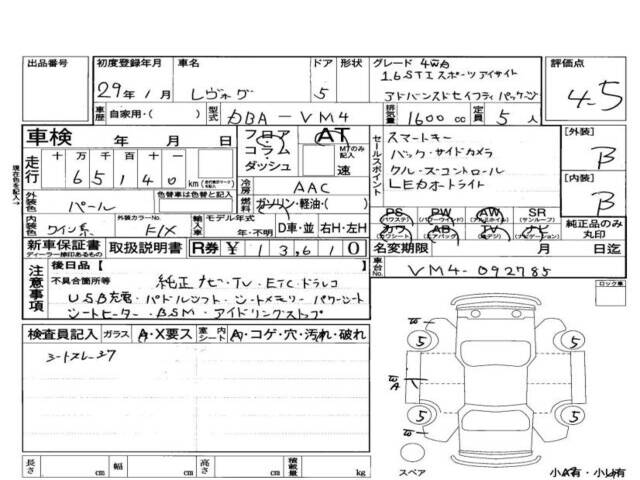 出品番号
初度登録年月
29年1月
車名
レヴォーグ
ドア 形状
5
グレード 4WD
1.6STIスポーツアイサイト
アドバンスドセイフティパッケージ
評価点
4-5
車歴 自家用・( )
型式 DBA-VM4
排気量 1600cc
定員 5人
車検 年 月 日
フロア
コラム
ダッシュ
AT
MTのみ記入
速
セールスポイント
スマートキー
バック・サイドカメラ
クルーズコントロール
LEDオートライト
[外装]
B
[内装]
B
走行
十 万 千 百 十 一
65140 km
現在色を記入→
外装色 パール
色替車は色替と記入
冷房 AAC
燃料 ガソリン・軽油・( )
内装色 ワイン系
外装カラーNo. K1X
輸入車
モデル年式
年・不明
D車・並 右H・左H
PS (パワステ)
PW (パワーウインド)
AW (アルミホイル)
SR (サンルーフ)
カワ (カワシート)
AB (エアバック)
TV (地デジ)
ナビ (ナビゲーション)
純正品のみ丸印
新車保証書
ディーラー捺印あるもの
取扱説明書
R券 ¥13,610
名変期限 月 日迄
車台No. VM4-092785
注意事項
後日品【
不具合箇所等
純正ナビ・TV・ETC・ドラレコ
USB充電・パドルシフト・シートメモリー パワーシート
シートヒーター・BSM・アイドリングストップ
ロック車
検査員記入 ガラス A・X要ス 室内シート A・コゲ・穴・汚れ・破れ
シートスレ-ヨゴ
W
5
5
W
A
5
5
W
長さ cm 幅 cm 高さ cm 積載量 kg
スペア
小A有・小U有